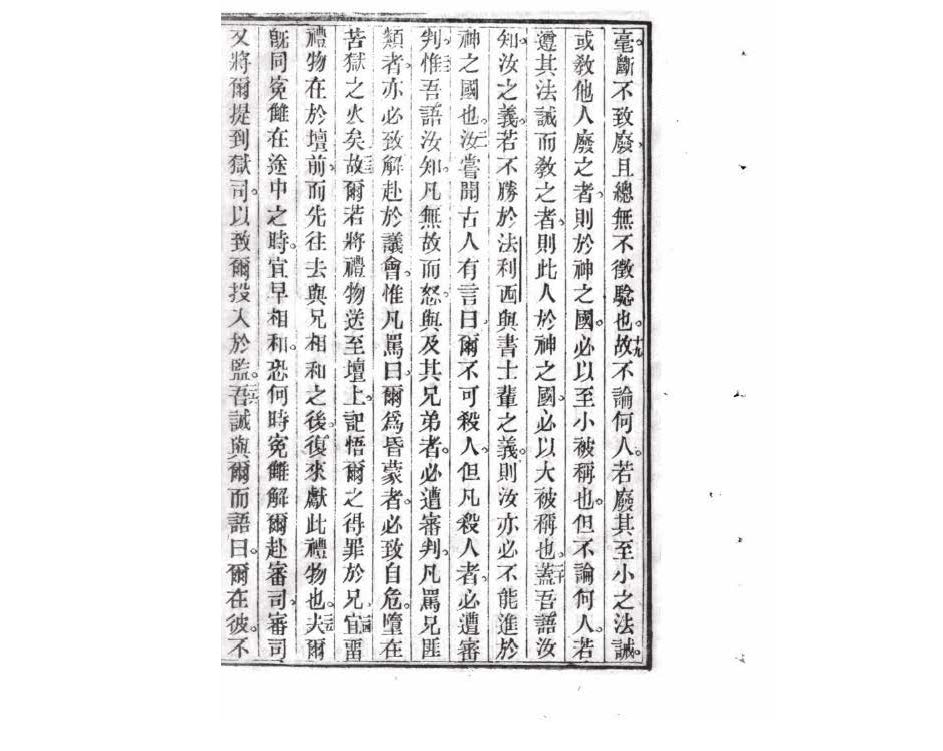 毫斷不致廢、且總無不徵騐也。十九故不論何人。若廢其至小之法誡。
或教他人廢之者、則於神之國。必以至小被稱也。但不論何人。若
遵其法誡而教之者、則此人於神之國。必以大被稱也。二十蓋吾語汝
知汝之義。若不勝於法利西與書士輩之義。則汝亦必不能進於
神之國也。汝嘗聞古人有言曰、爾不可殺人。但凡殺人者。必遭審
判。惟吾語汝知。凡無故而怒。與及其兄弟者。必遭審判。凡罵兄匪
類者。亦必致解赴於議會。惟凡罵曰。爾為昏蒙者。必致自危。墮在
苦獄之火矣。故爾若將禮物送至壇上。記悟爾之得罪於兄。宜畱
禮物在於壇前。而先往去與兄相和之後。復來獻此禮物也。夫爾
旣同寃雠在途中之時。宜早相和。恐何時寃雠解爾赴審司。審司
又將爾提到獄司。以致爾投入於監。吾誠與爾而語曰。爾在彼。不